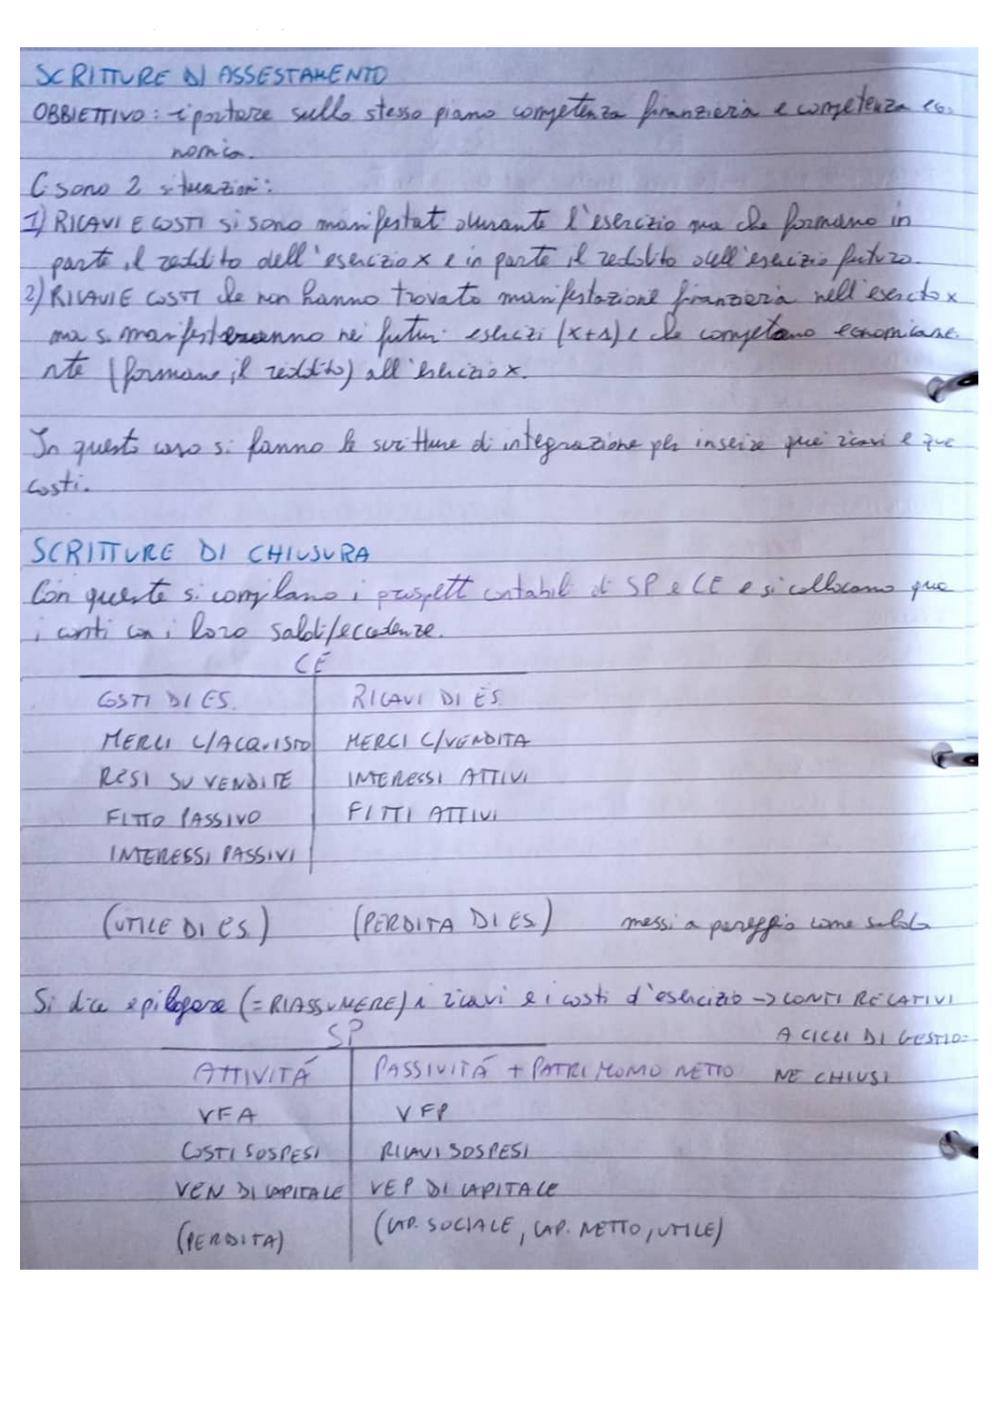 SCRITTURE DI ASSESTAMENTO
OBBIETTIVO: riportare sullo stesso piano competenza finanziaria e competenza eco-
nomica.
Ci sono 2 situazioni:
1) RICAVI E COSTI si sono manifestati durante l'esercizio ma che formano in
parte il reddito dell'esercizio x e in parte il reddito dell'esercizio futuro.
2) RICAVI E COSTI che non hanno trovato manifestazione finanziaria nell'esercizio x
ma si manifesteranno nei futuri esercizi (x+1) e che competono economicame-
nte (formano il reddito) all'esercizio x.
In questo caso si fanno le scritture di integrazione per inserire quei ricavi e quei
costi.
SCRITTURE DI CHIUSURA
Con queste si compilano i prospetti contabili di SP e CE e si collocano qua
i conti con i loro saldi/eccedenze.
CE
COSTI DI ES. RICAVI DI ES
MERCI C/ACQUISTO MERCI C/VENDITA
RESI SU VENDITE INTERESSI ATTIVI
FITTO PASSIVO FITTI ATTIVI
INTERESSI PASSIVI
(UTILE DI ES.) (PERDITA DI ES.) messi a pareggio come saldo
Si dice epilogare (=RIASSUMERE) i ricavi e i costi d'esercizio -> CONTI RELATIVI
SP A CICLI DI GESTIO-
ATTIVITÁ PASSIVITÁ + PATRIMONIO NETTO NE CHIUSI
VFA VFP
COSTI SOSPESI RICAVI SOSPESI
VEN DI CAPITALE VEP DI CAPITALE
(PERDITA) (CAP. SOCIALE, CAP. NETTO, UTILE)